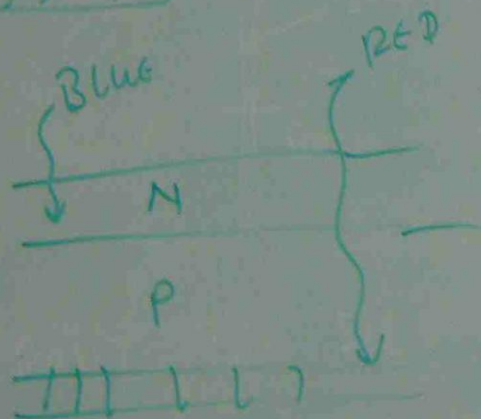 BLUE
RED
N
P